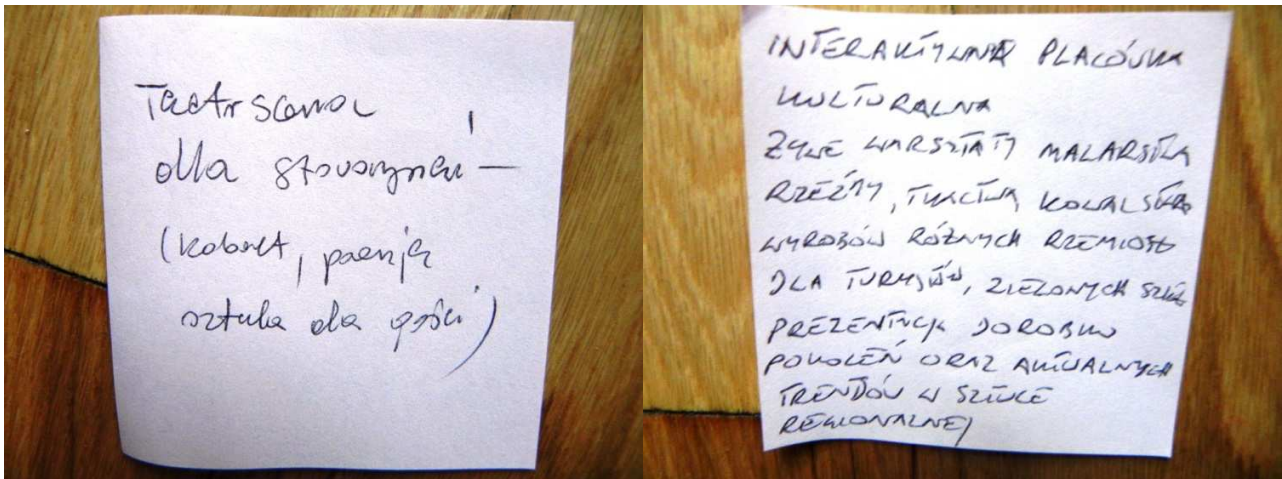 Teatr scena
dla stowarzyszeń –
(kabaret, poezja
sztuka dla gości)
INTERAKTYWNA PLACÓWKA
KULTURALNA
ŻYWE WARSZTATY MALARSTWA
RZEŹBY, TKACTWA, KOWALSTWA
WYROBÓW RÓŻNYCH RZEMIOSŁ
DLA TURYSTÓW, ZIELONYCH SZKÓŁ
PREZENTACJA DOROBKU
POKOLEŃ ORAZ AKTUALNYCH
TRENDÓW W SZTUCE
REGIONALNEJ